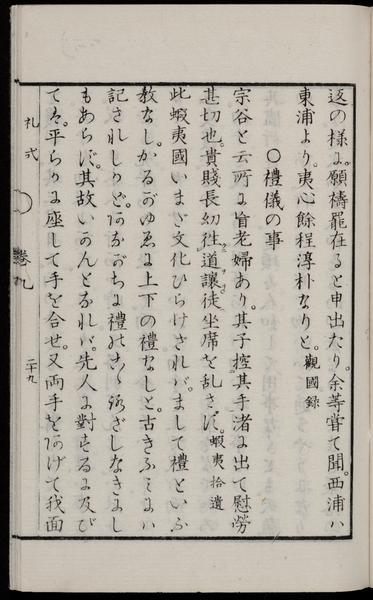 返の様に願禱罷在ると申出たり。余等嘗て聞。西浦ハ
東浦より。夷心餘程淳朴なりと。觀國録
〇禮儀の事
宗谷と云所に盲老婦あり。其子控其手渚に出て慰勞
甚切也。貴賤長幼徃道讓。徒坐席を乱さず。蝦夷拾遺
此蝦夷國いまだ文化ひらけざれバ。まして禮といふ
教なし。かるがゆゑに上下の禮なしと。古きふミにハ
記されしかど。あながちに禮のこゝろざしなきにし
もあらず。其故いかんとなれバ。先人に對するに及び
てハ。平らかに座して手を合せ。又両手をあげて我面
礼式
巻九
二十九